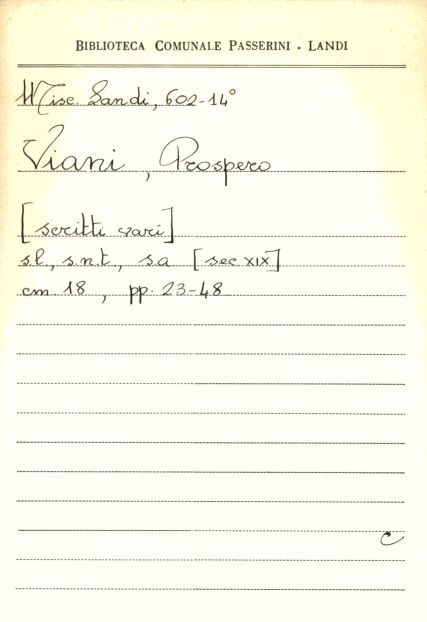 BIBLIOTECA COMUNALE PASSERINI - LANDI
Misc. Landi, 602-14°
Viani, Prospero
[scritti vari]
s.l., s.n.t., s.a. [sec XIX]
cm. 18, pp. 23-48
c